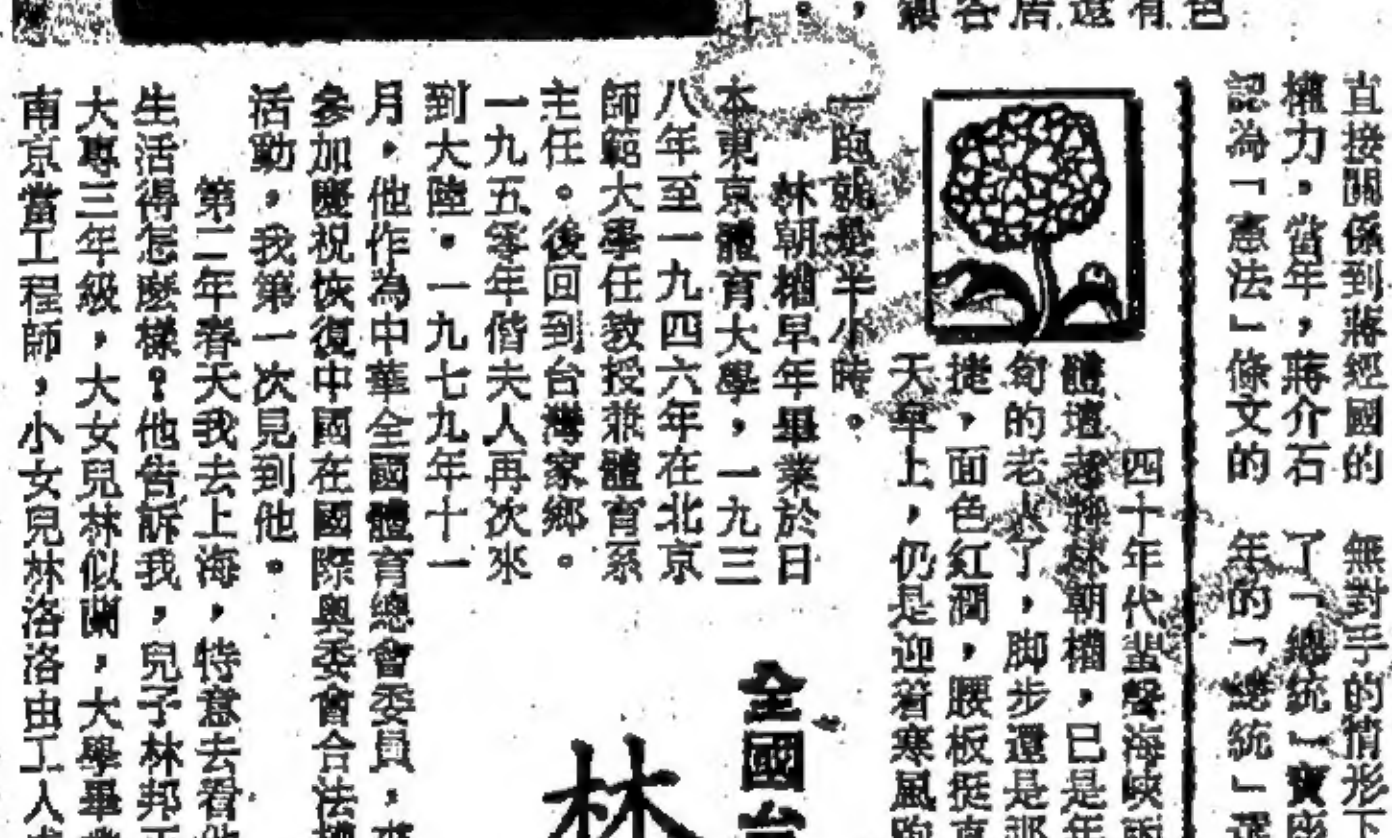 直接關係到蔣經國的
權力。當年，蔣介石
記為「憲法」條文的
無對手的情形下
了「總統」寶座
年的「總統」
客居還有色
四十年代蜚聲海峽
體壇老將林朝權，已是年
旬的老人了，脚步還是那
捷，面色紅潤，腰板挺直
天早上，仍是迎着寒風跑
一跑就是半小時。
林朝權早年畢業於日
本東京體育大學，一九三
八年至一九四六年在北京
師範大學任教授兼體育系
主任。後回到台灣家鄉。
一九五零年偕夫人再次來
到大陸。一九七九年十一
月，他作為中華全國體育總會委員，來
參加慶祝恢復中國在國際奧委會合法權
活動，我第一次見到他。
第二年春天我去上海，特意去看他
生活得怎麼樣？他告訴我，兒子林邦
大專三年級，大女兒林似蘭，大學畢業
南京當工程師，小女兒林洛洛由工人
全國台
林